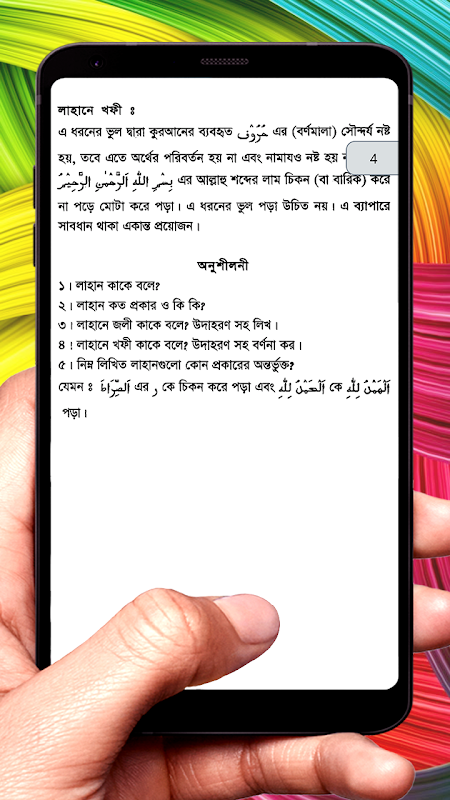 লাহানে খফী ঃ
এ ধরনের ভুল দ্বারা কুরআনের ব্যবহৃত حُرُوْف এর (বর্ণমালা) সৌন্দর্য নষ্ট
হয়, তবে এতে অর্থের পরিবর্তন হয় না এবং নামাযও নষ্ট হয়
4
بِسْمِ اللّٰهِ الرَّحْمٰنِ الرَّحِيْمِ এর আল্লাহু শব্দের লাম চিকন (বা বারিক) করে
না পড়ে মোটা করে পড়া। এ ধরনের ভুল পড়া উচিত নয়। এ ব্যাপারে
সাবধান থাকা একান্ত প্রয়োজন।
অনুশীলনী
১। লাহান কাকে বলে?
২। লাহান কত প্রকার ও কি কি?
৩। লাহানে জলী কাকে বলে? উদাহরণ সহ লিখ।
৪। লাহানে খফী কাকে বলে? উদাহরণ সহ বর্ণনা কর।
৫। নিম্ন লিখিত লাহানগুলো কোন প্রকারের অন্তর্ভুক্ত?
যেমন ঃ اَلصِّرَاطَ এর ر কে চিকন করে পড়া এবং اَلْحَمْدُ لِلّٰهِ কে اَلْهَمْدُ لِلّٰهِ
পড়া।